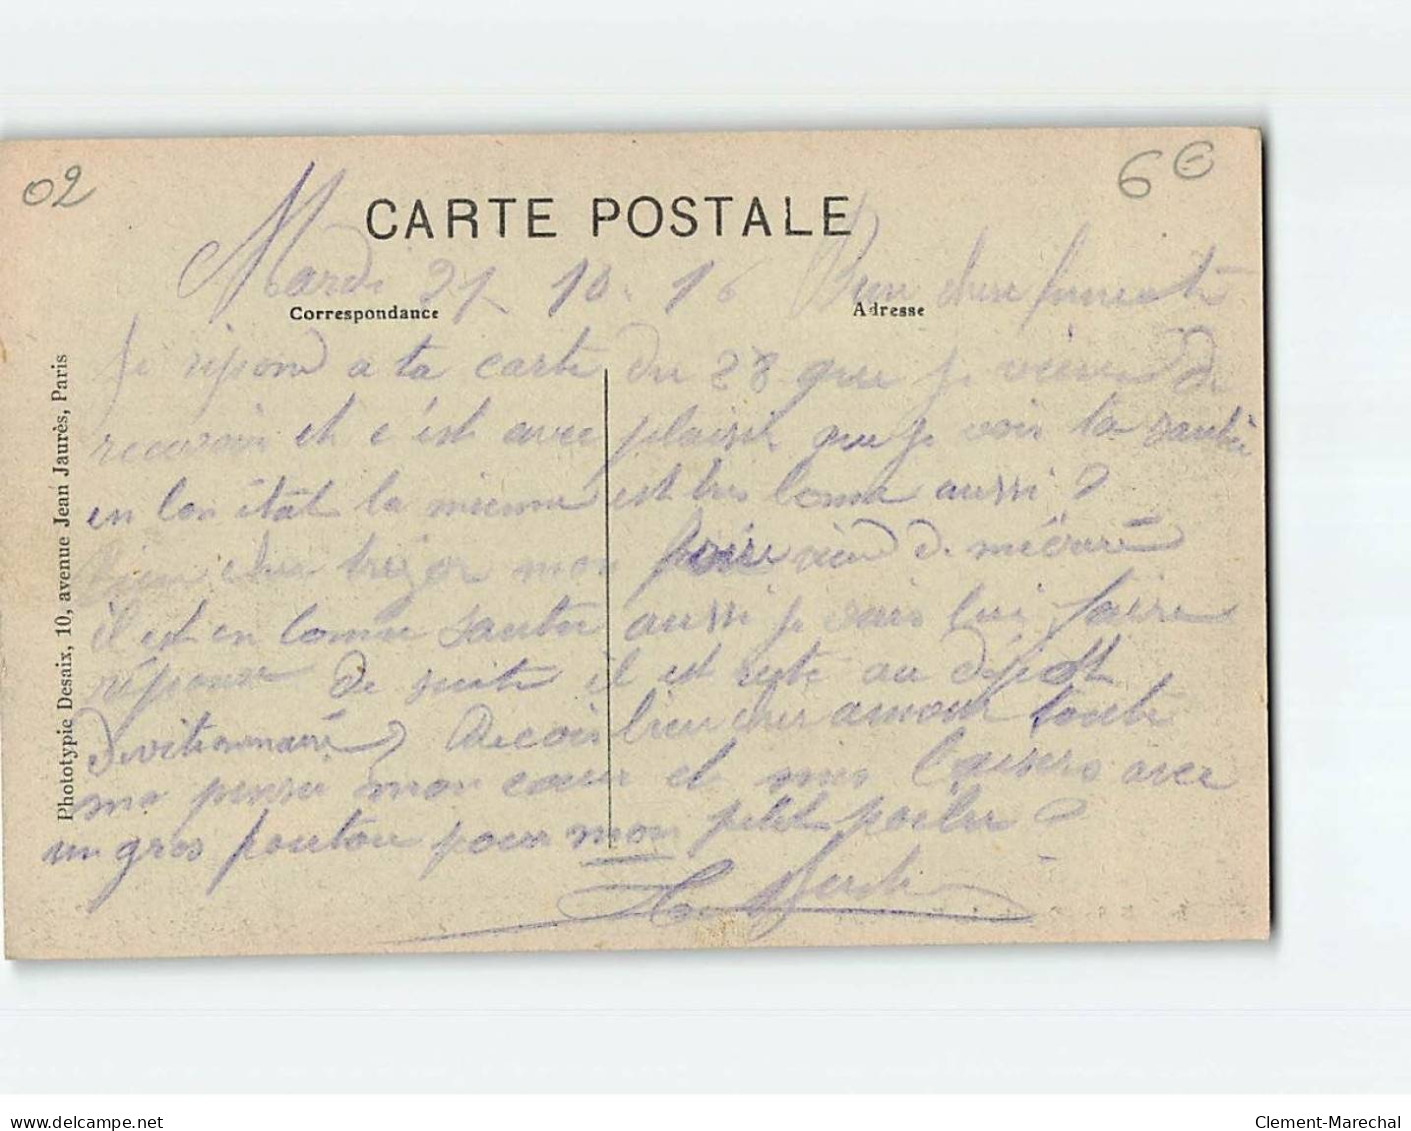 02
6€
CARTE POSTALE
Mardi 31 10. 16 Bien chere
Correspondance
Adresse
Je répond a ta carte du 28 que je viens de
recevoir et c'est avec plaisir que je vois ta santée
en bon état la mienne est tres bonne aussi ?
bien cher trézor mon frère vien de m'écriré
il est en bonne santée aussi je vais lui faire
réponse de suite il est resté au dépôt
divitionnairé, Recois bien cher amour toute
ma pensée mon cœur et mes baisers avec
un gros poutou pour mon petit poilu ?
Phototypie Desaix, 10, avenue Jean Jaurès, Paris
delcampe.net
Clement-Marechal